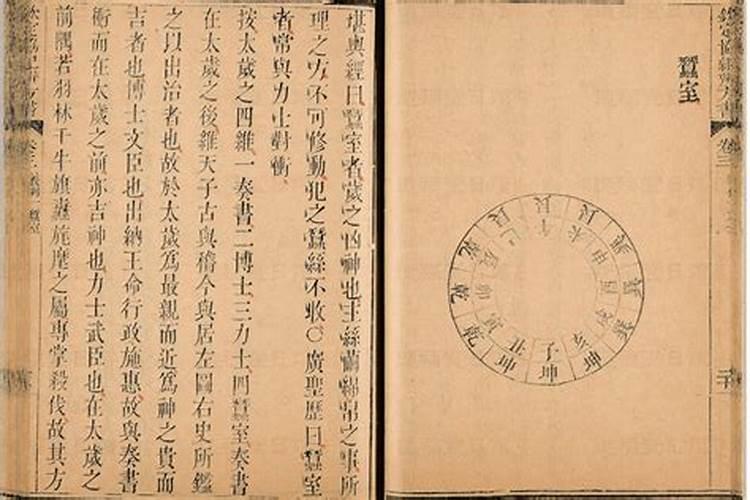 蠶室
巳 午 未 申 酉 戌 亥 子 丑 寅 卯 辰
乾 艮 艮 艮 巽 巽 巽 坤 坤 坤 乾 乾
堪輿經曰蠶室者歲之凶神也主絲繭綿帛之事所
理之方不可修動犯之蠶絲不收○廣聖歷曰蠶室
者常與力士對衝
按太歲之四維一奏書二博士三力士四蠶室奏書
在太歲之後維天子古與稽今與居左圖右史所鑑
之以出治者也故於太歲爲最親而近爲神之貴而
吉者也博士文臣也出納王命行政施惠故與奏書
衝而在太歲之前亦吉神也力士武臣也在太歲之
前隅若羽林千牛旗纛旄麾之屬專掌殺伐故其方